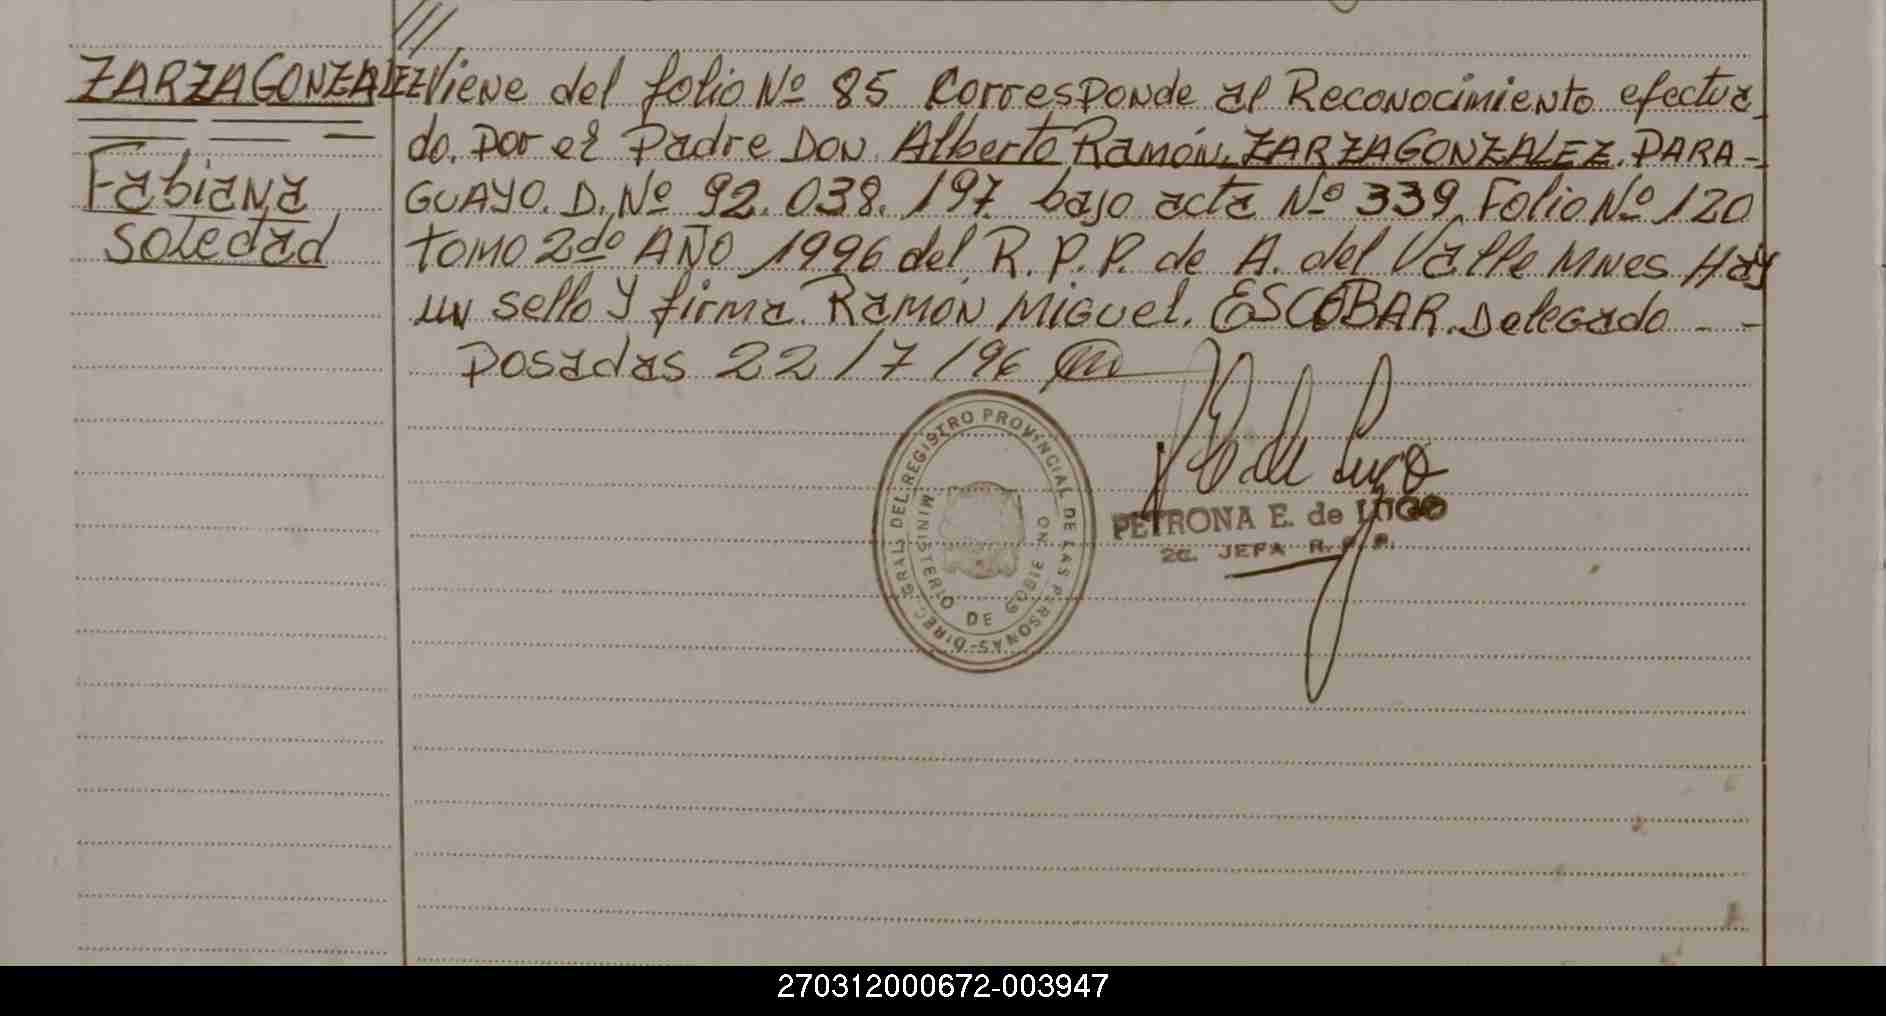 ///
ZARZAGONZALEZ
Fabiana
Soledad
Viene del folio Nº 85 Corresponde al Reconocimiento efectua
do. por el Padre Don Alberto Ramón. ZARZAGONZALEZ. PARA-
GUAYO. D. Nº 92.038.197 bajo acta Nº 339. Folio Nº 120
TOMO 2do AÑO 1996 del R. P. P. de A. del Valle Mnes Hay
un sello y firma. Ramón Miguel. ESCOBAR. Delegado - -
Posadas 22/7/96
DIREC. GRAL. DEL REGISTRO PROVINCIAL DE LAS PERSONAS-
MINISTERIO DE GOBIERNO
PETRONA E. de LUGO
2a. JEFA R. P. P.
270312000672-003947